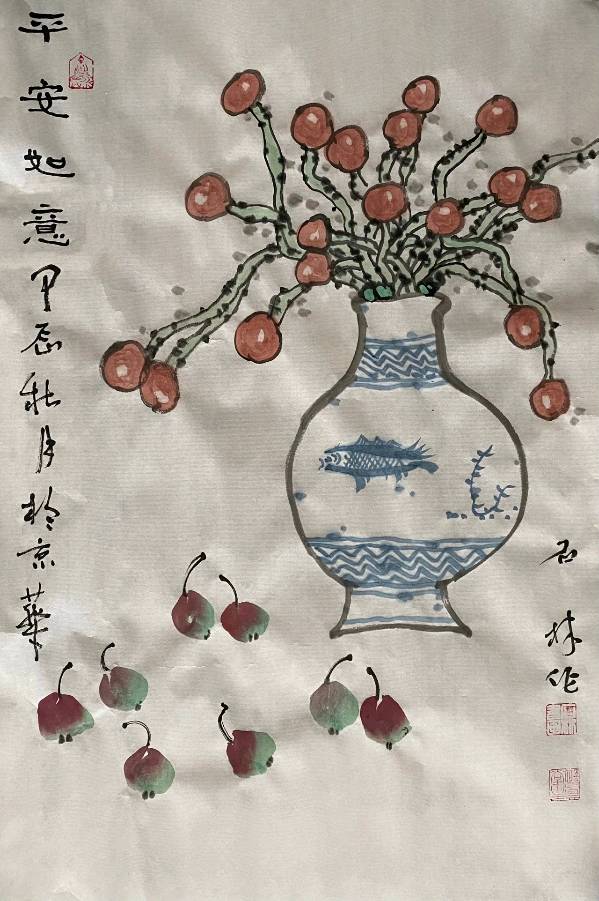 平安如意甲辰秋月於京華
石林作